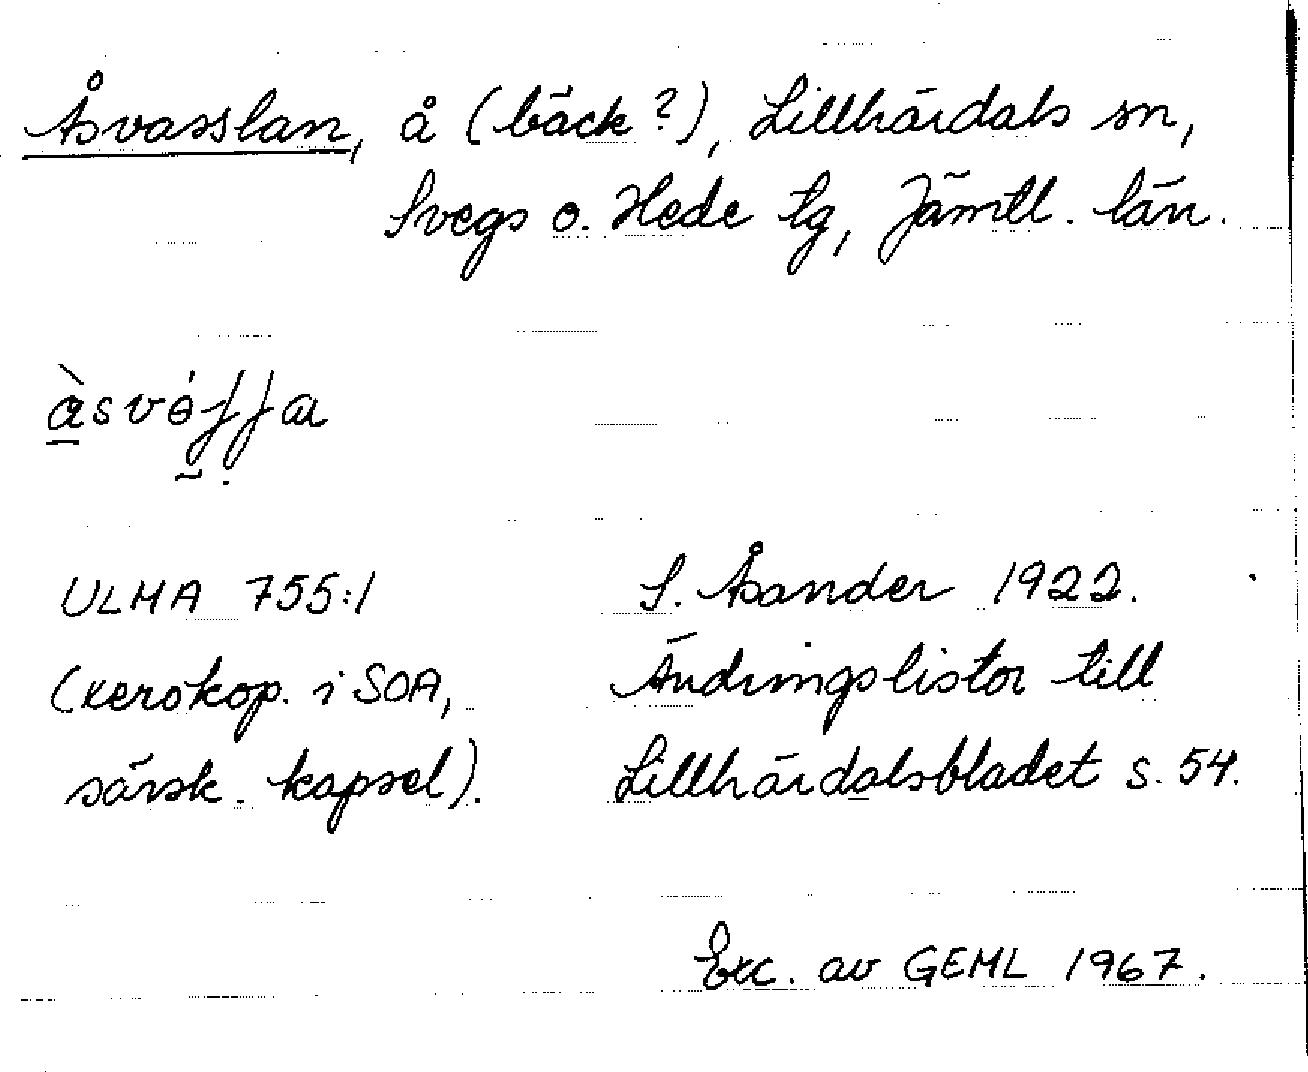 Åsvasslan, å (bäck?), Lillhärdals sn,
Svegs o. Hede tg, Jämtl. län.
ULMA 755:1
S. Åsander 1922.
(xerokop. i SOA,
Ändringslistor till
särsk. kapsel).
Lillhärdalsbladet s. 54.
Exc. av GEML 1967.